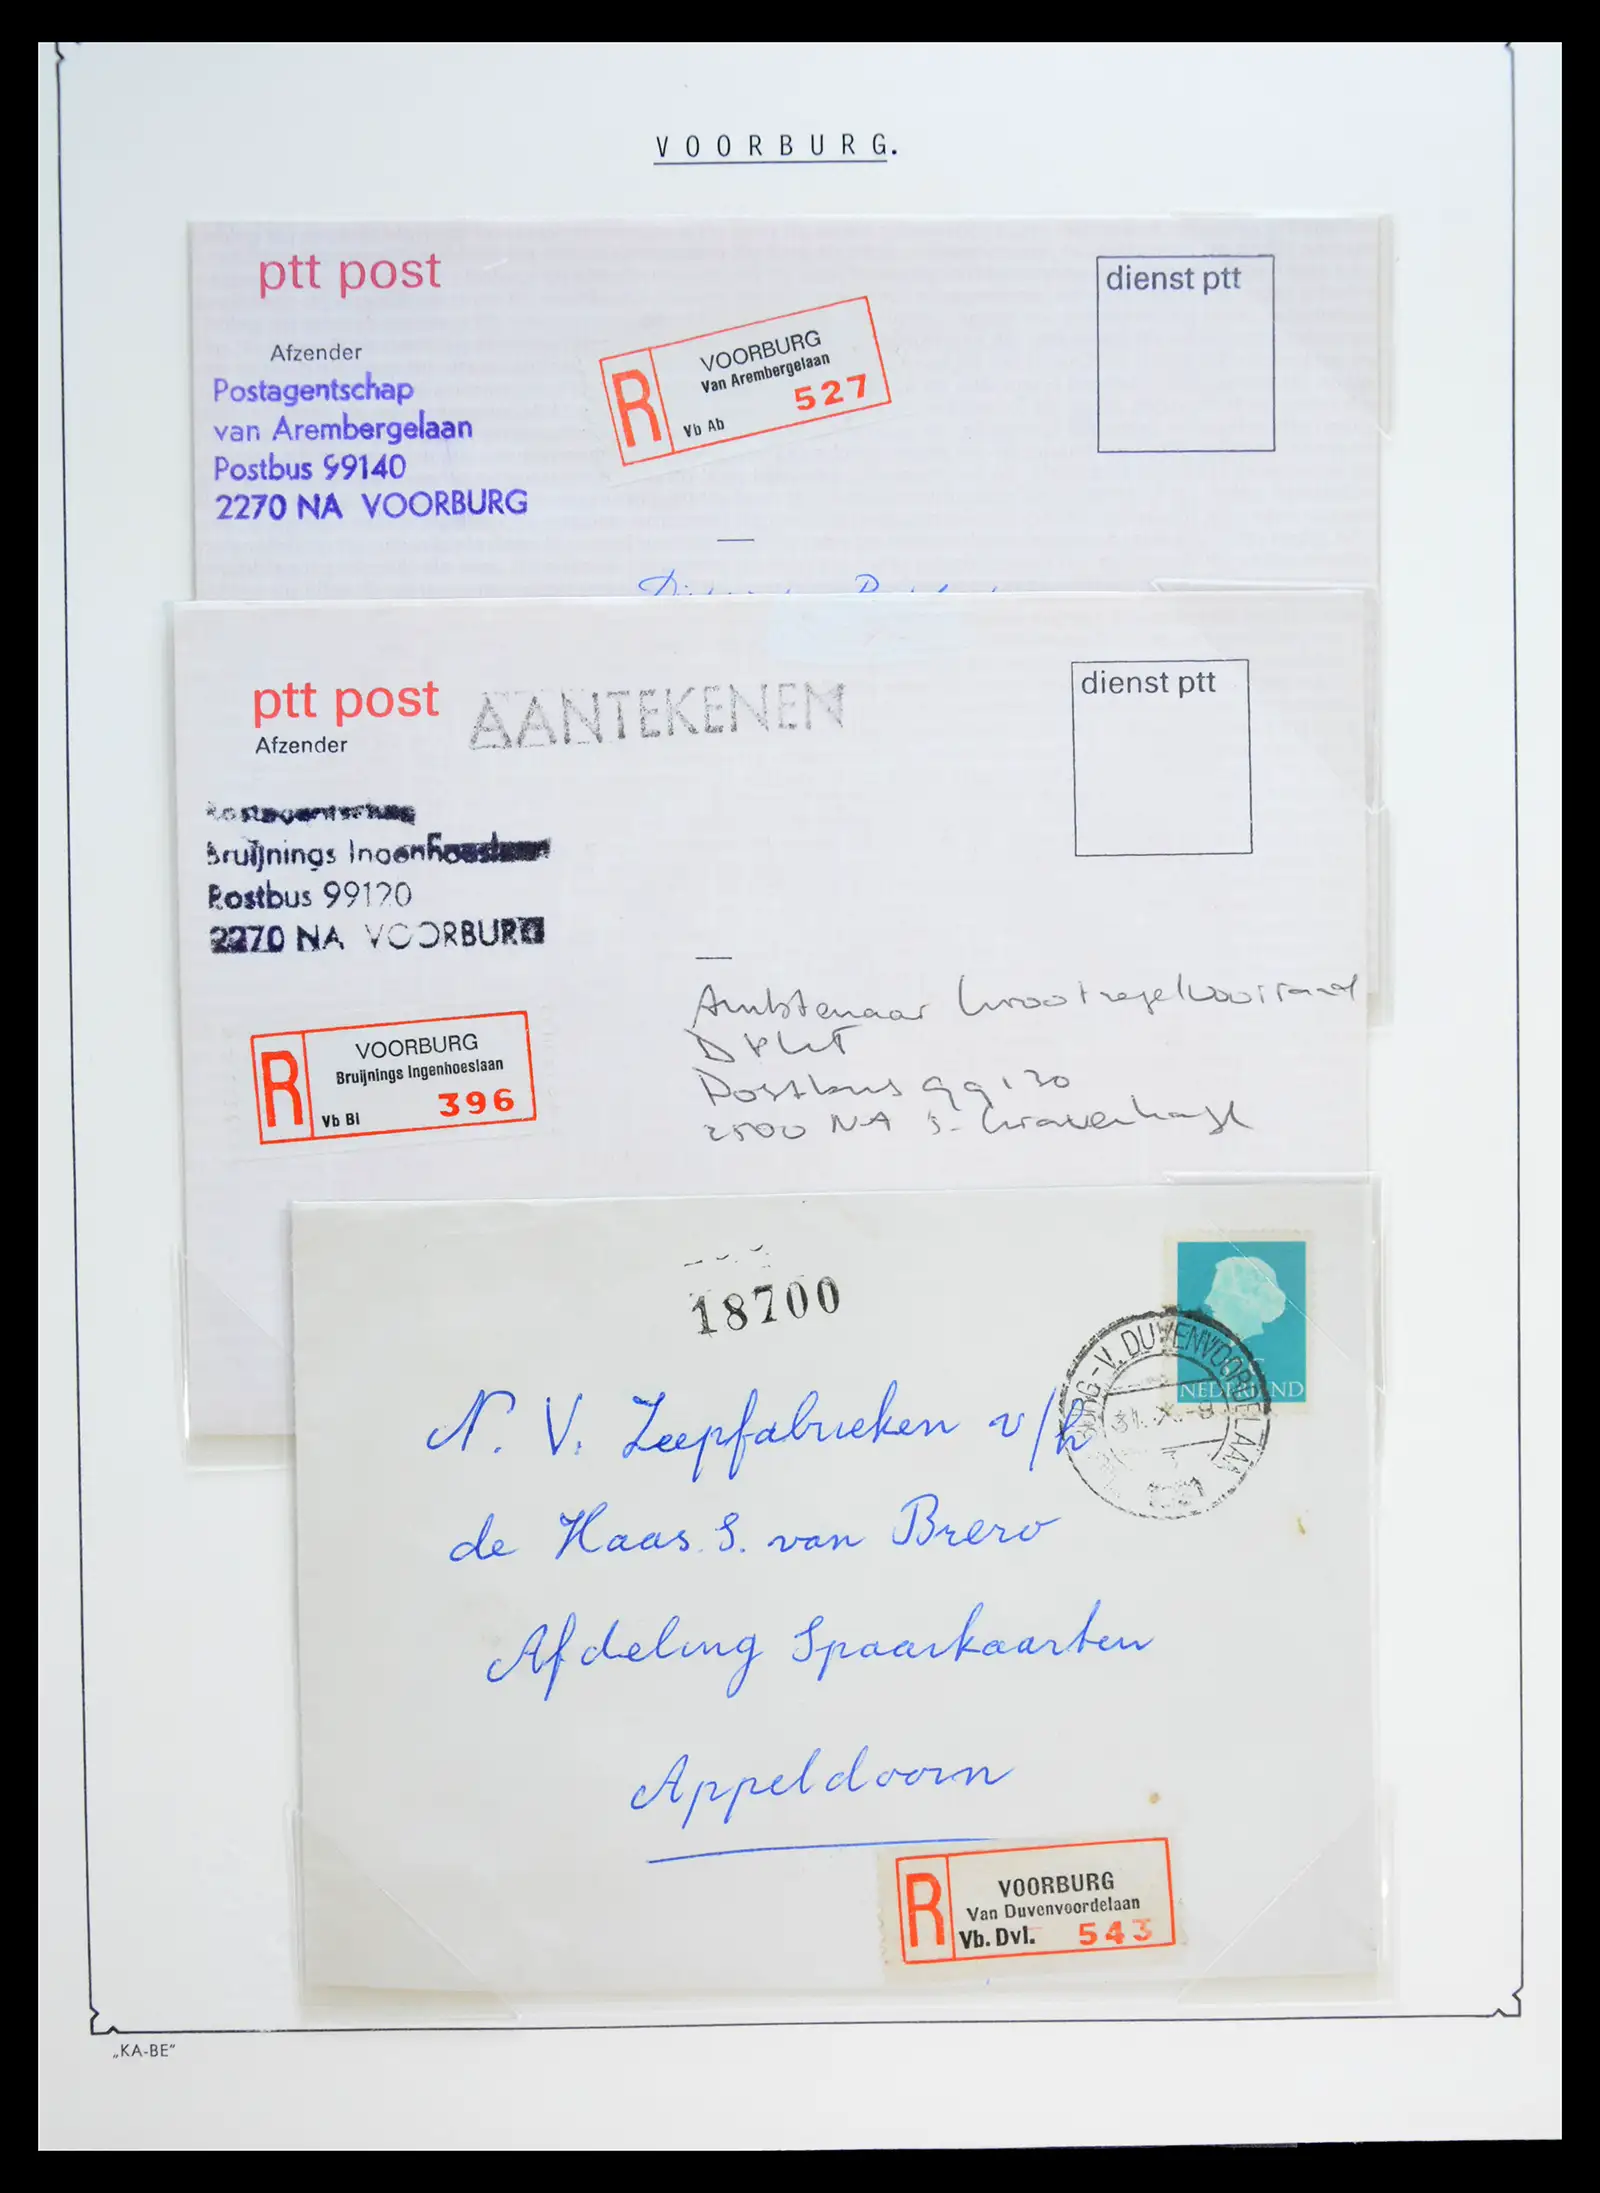 VOORBURG.
ptt post
dienst ptt
Afzender
Postagentschap
van Arembergelaan
Postbus 99140
2270 NA VOORBURG
R
VOORBURG
Van Arembergelaan
527
Vb Ab
ptt post
AANTEKENEN
dienst ptt
Afzender
Postagentschap
Bruijnings Ingenhoeslaan
Postbus 99120
2270 NA VOORBURG
R
VOORBURG
Bruijnings Ingenhoeslaan
396
Vb BI
Ambtenaar
Postbus 99130
2500 NA s-Gravenhage
18700
NEDERLAND
VOORBURG-V. DUVENVOORDELAAN
31. X.-8
N. V. Zeepfabrieken v/h
de Haas. S. van Brero
Afdeling Spaarkaarten
Appeldoorn
R
VOORBURG
Van Duvenvoordelaan
Vb. Dvl. 543
„KA-BE”